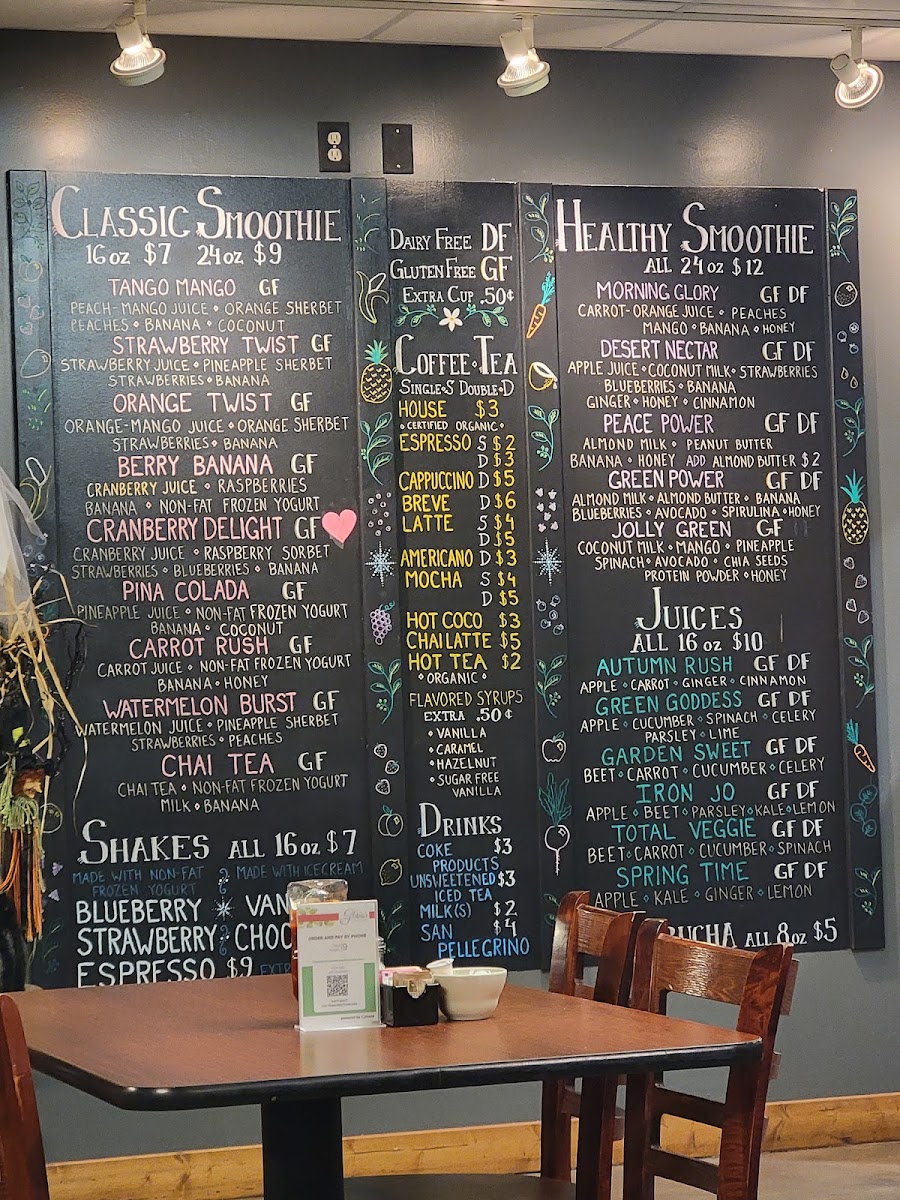 CLASSIC SMOOTHIE
16oz $7 24oz $9
TANGO MANGO GF
PEACH-MANGO JUICE • ORANGE SHERBET
PEACHES • BANANA • COCONUT
STRAWBERRY TWIST GF
STRAWBERRY JUICE • PINEAPPLE SHERBET
STRAWBERRIES • BANANA
ORANGE TWIST GF
ORANGE-MANGO JUICE • ORANGE SHERBET
STRAWBERRIES • BANANA
BERRY BANANA GF
CRANBERRY JUICE • RASPBERRIES
BANANA • NON-FAT FROZEN YOGURT
CRANBERRY DELIGHT GF
CRANBERRY JUICE • RASPBERRY SORBET
STRAWBERRIES • BLUEBERRIES • BANANA
PINA COLADA GF
PINEAPPLE JUICE • NON-FAT FROZEN YOGURT
BANANA • COCONUT
CARROT RUSH GF
CARROT JUICE • NON-FAT FROZEN YOGURT
BANANA • HONEY
WATERMELON BURST GF
WATERMELON JUICE • PINEAPPLE SHERBET
STRAWBERRIES • PEACHES
CHAI TEA GF
CHAI TEA • NON-FAT FROZEN YOGURT
MILK • BANANA
SHAKES ALL 16oz $7
MADE WITH NON-FAT
FROZEN YOGURT
MADE WITH ICECREAM
BLUEBERRY VAN
STRAWBERRY CHOC
ESPRESSO $9
DAIRY FREE DF
GLUTEN FREE GF
EXTRA CUP .50¢
COFFEE • TEA
SINGLE•S DOUBLE•D
HOUSE $3
• CERTIFIED ORGANIC •
ESPRESSO S $2
D $3
CAPPUCCINO D $5
BREVE D $6
LATTE S $4
D $5
AMERICANO D $3
MOCHA S $4
D $5
HOT COCO $3
CHAI LATTE $5
HOT TEA $2
• ORGANIC •
FLAVORED SYRUPS
EXTRA .50¢
• VANILLA
• CARAMEL
• HAZELNUT
• SUGAR FREE
VANILLA
DRINKS
COKE $3
PRODUCTS
UNSWEETENED $3
ICED TEA
MILK(S) $2
SAN $4
PELLEGRINO
HEALTHY SMOOTHIE
ALL 24oz $12
MORNING GLORY GF DF
CARROT-ORANGE JUICE • PEACHES
MANGO • BANANA • HONEY
DESERT NECTAR GF DF
APPLE JUICE • COCONUT MILK • STRAWBERRIES
BLUEBERRIES • BANANA
GINGER • HONEY • CINNAMON
PEACE POWER GF DF
ALMOND MILK • PEANUT BUTTER
BANANA • HONEY ADD ALMOND BUTTER $2
GREEN POWER GF DF
ALMOND MILK • ALMOND BUTTER • BANANA
BLUEBERRIES • AVOCADO • SPIRULINA • HONEY
JOLLY GREEN GF
COCONUT MILK • MANGO • PINEAPPLE
SPINACH • AVOCADO • CHIA SEEDS
PROTEIN POWDER • HONEY
JUICES
ALL 16 oz $10
AUTUMN RUSH GF DF
APPLE • CARROT • GINGER • CINNAMON
GREEN GODDESS GF DF
APPLE • CUCUMBER • SPINACH • CELERY
PARSLEY • LIME
GARDEN SWEET GF DF
BEET • CARROT • CUCUMBER • CELERY
IRON JO GF DF
APPLE • BEET • PARSLEY • KALE • LEMON
TOTAL VEGGIE GF DF
BEET • CARROT • CUCUMBER • SPINACH
SPRING TIME GF DF
APPLE • KALE • GINGER • LEMON
UCHA ALL 8oz $5
ORDER AND PAY BY PHONE